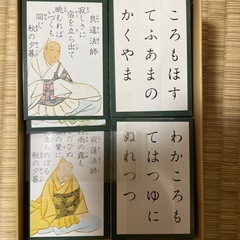 ころもほす
てふあまの
かくやま
良暹法師
寂しさに
宿を立ち出て
眺むれば
いづくも
同じ
秋の夕暮
わかころも
てはつゆに
ぬれつつ
寂蓮法師
雨の露も
だひぬ
の葉に
立ちのぼる
秋の夕暮